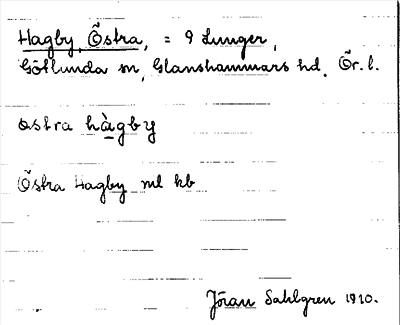 Hagby, Östra, = 9 Lunger,
Götlunda sn, Glanshammars hd. Ör. l.
ostra hàgby
Östra Hagby ml kb
Jöran Sahlgren 1910.